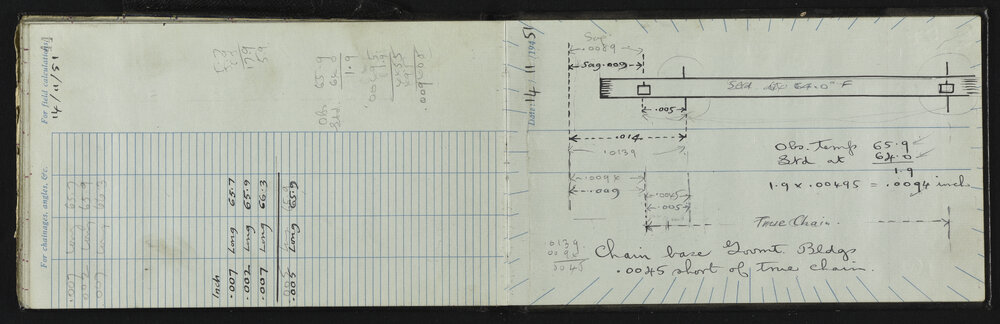 For field calculations]
14/11/51
For chainages, angles, &c.
Obs 65.9
Std. 64.0
1.9
.007 Long 65.7
.002 Long 65.9
.007 Long 66.3
Inch
.007 Long 65.7
.002 Long 65.9
.007 Long 66.3
.005 Long 65.9
Date: 14/11/1951
Sag
.0089
Sag .009
Std at 64.0° F
.005
.014
.0139
.0094
.009
.0045
.005
Obs. temp 65.9
Std at 64.0
1.9
1.9 x .00495 = .0094 inch
True Chain
.0139
.0094
.0045
Chain base Govmt. Bldgs
.0045 short of true chain.